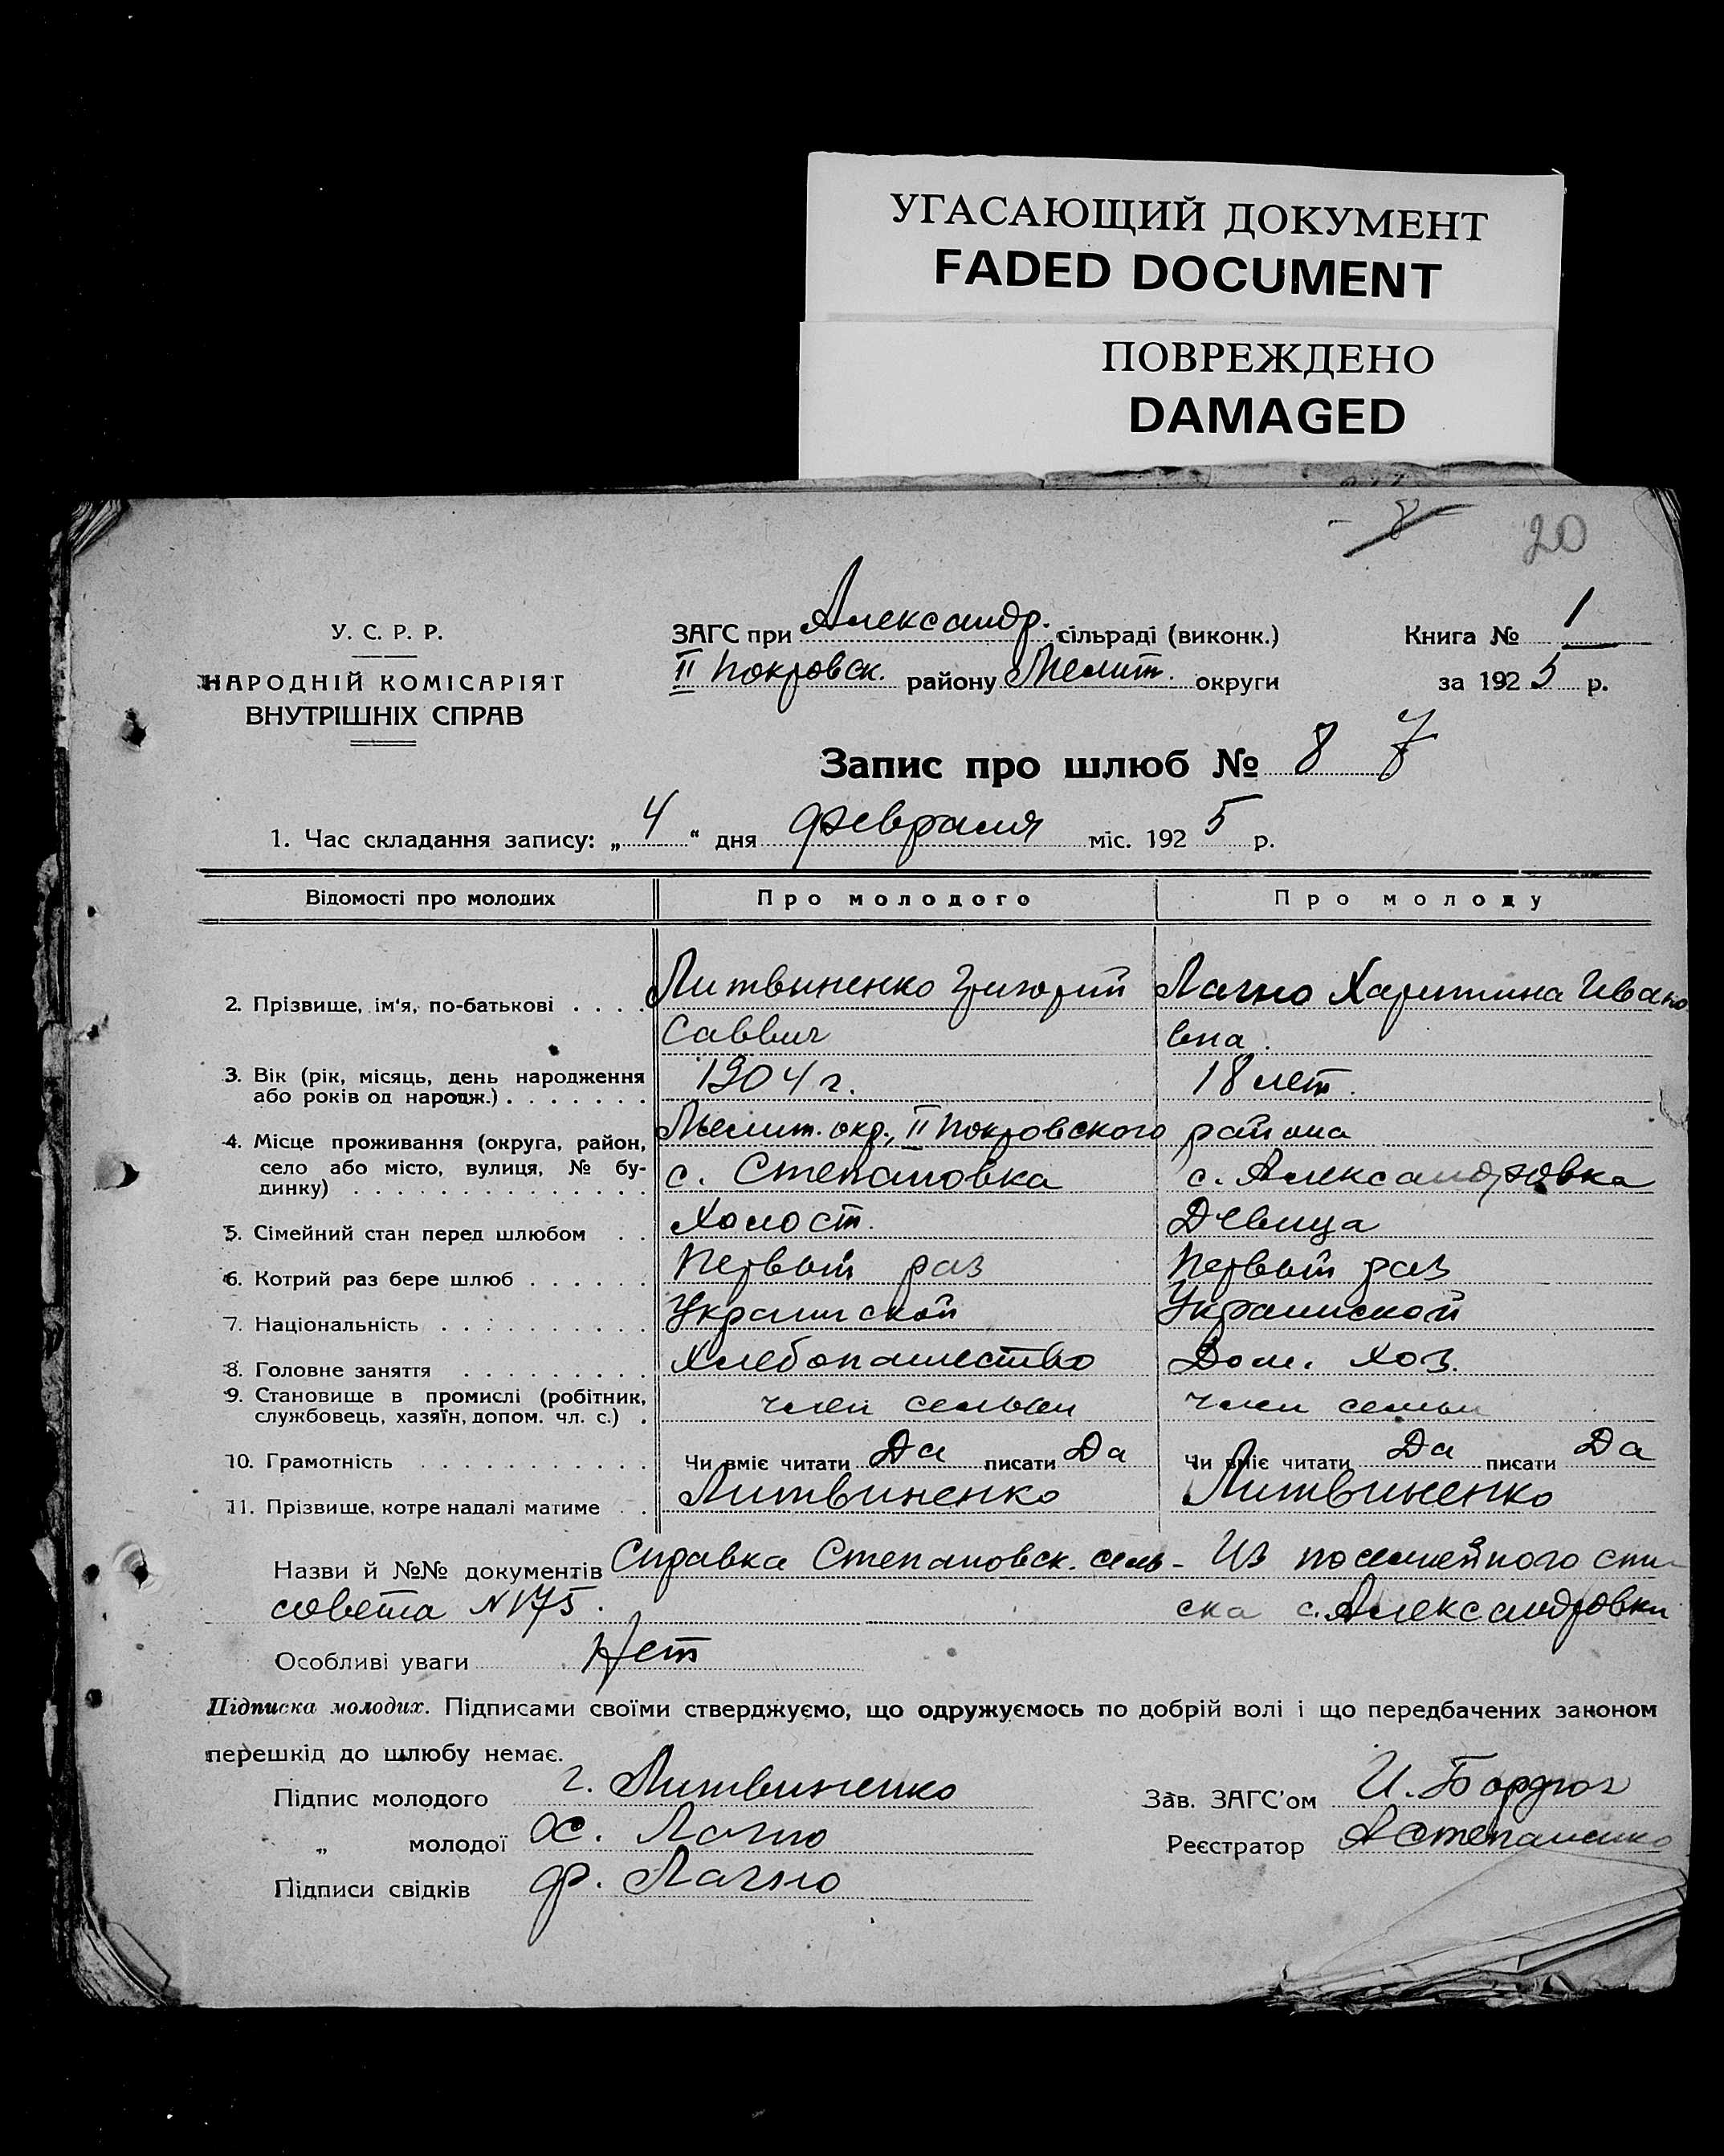 УГАСАЮЩИЙ ДОКУМЕНТ
FADED DOCUMENT
ПОВРЕЖДЕНО
DAMAGED
- 8 - 20
У. С. Р. Р.
НАРОДНІЙ КОМІСАРІЯТ
ВНУТРІШНІХ СПРАВ
ЗАГС при Александр. сільраді (виконк.)
II Покровск. району Мелит. округи
Книга № 1
за 1925 р.
Запис про шлюб № 8 7
1. Час складання запису: „ 4 “ дня февраля міс. 1925 р.
Відомості про молодих Про молодого Про молоду
2. Прізвище, ім'я, по-батькові . . . . Литвиненко Григорий Лагно Харитина Ивано
Саввич вна.
3. Вік (рік, місяць, день народження 1904 г. 18 лет.
або років од народж.) . . . . . . .
4. Місце проживання (округа, район, Мелит. окр., II Покровского района
село або місто, вулиця, № бу- с. Степановка с. Александровка
динку) . . . . . . . . . . . . . .
5. Сімейний стан перед шлюбом . . Холост. Девица
6. Котрий раз бере шлюб . . . . . . Первый раз Первый раз
7. Національність . . . . . . . . . . Украинской Украинской
8. Головне заняття . . . . . . . . . Хлебопашество Дом. хоз.
9. Становище в промислі (робітник, член семьи член семьи
службовець, хазяїн, допом. чл. с.) .
10. Грамотність . . . . . . . . . . . Чи вміє читати Да писати Да Чи вміє читати Да писати Да
11. Прізвище, котре надалі матиме . . Литвиненко Литвиненко
Назви й №№ документів Справка Степановск. сель- Из посемейного спи
совета N 175. ска с. Александровки
Особливі уваги Нет
Підписка молодих. Підписами своїми стверджуємо, що одружуємось по добрій волі і що передбачених законом
перешкід до шлюбу немає.
Підпис молодого Г. Литвиненко
„ молодої Х. Лагно
Підписи свідків Ф. Лагно
Зав. ЗАГС'ом И.
Реєстратор АСтепаненко